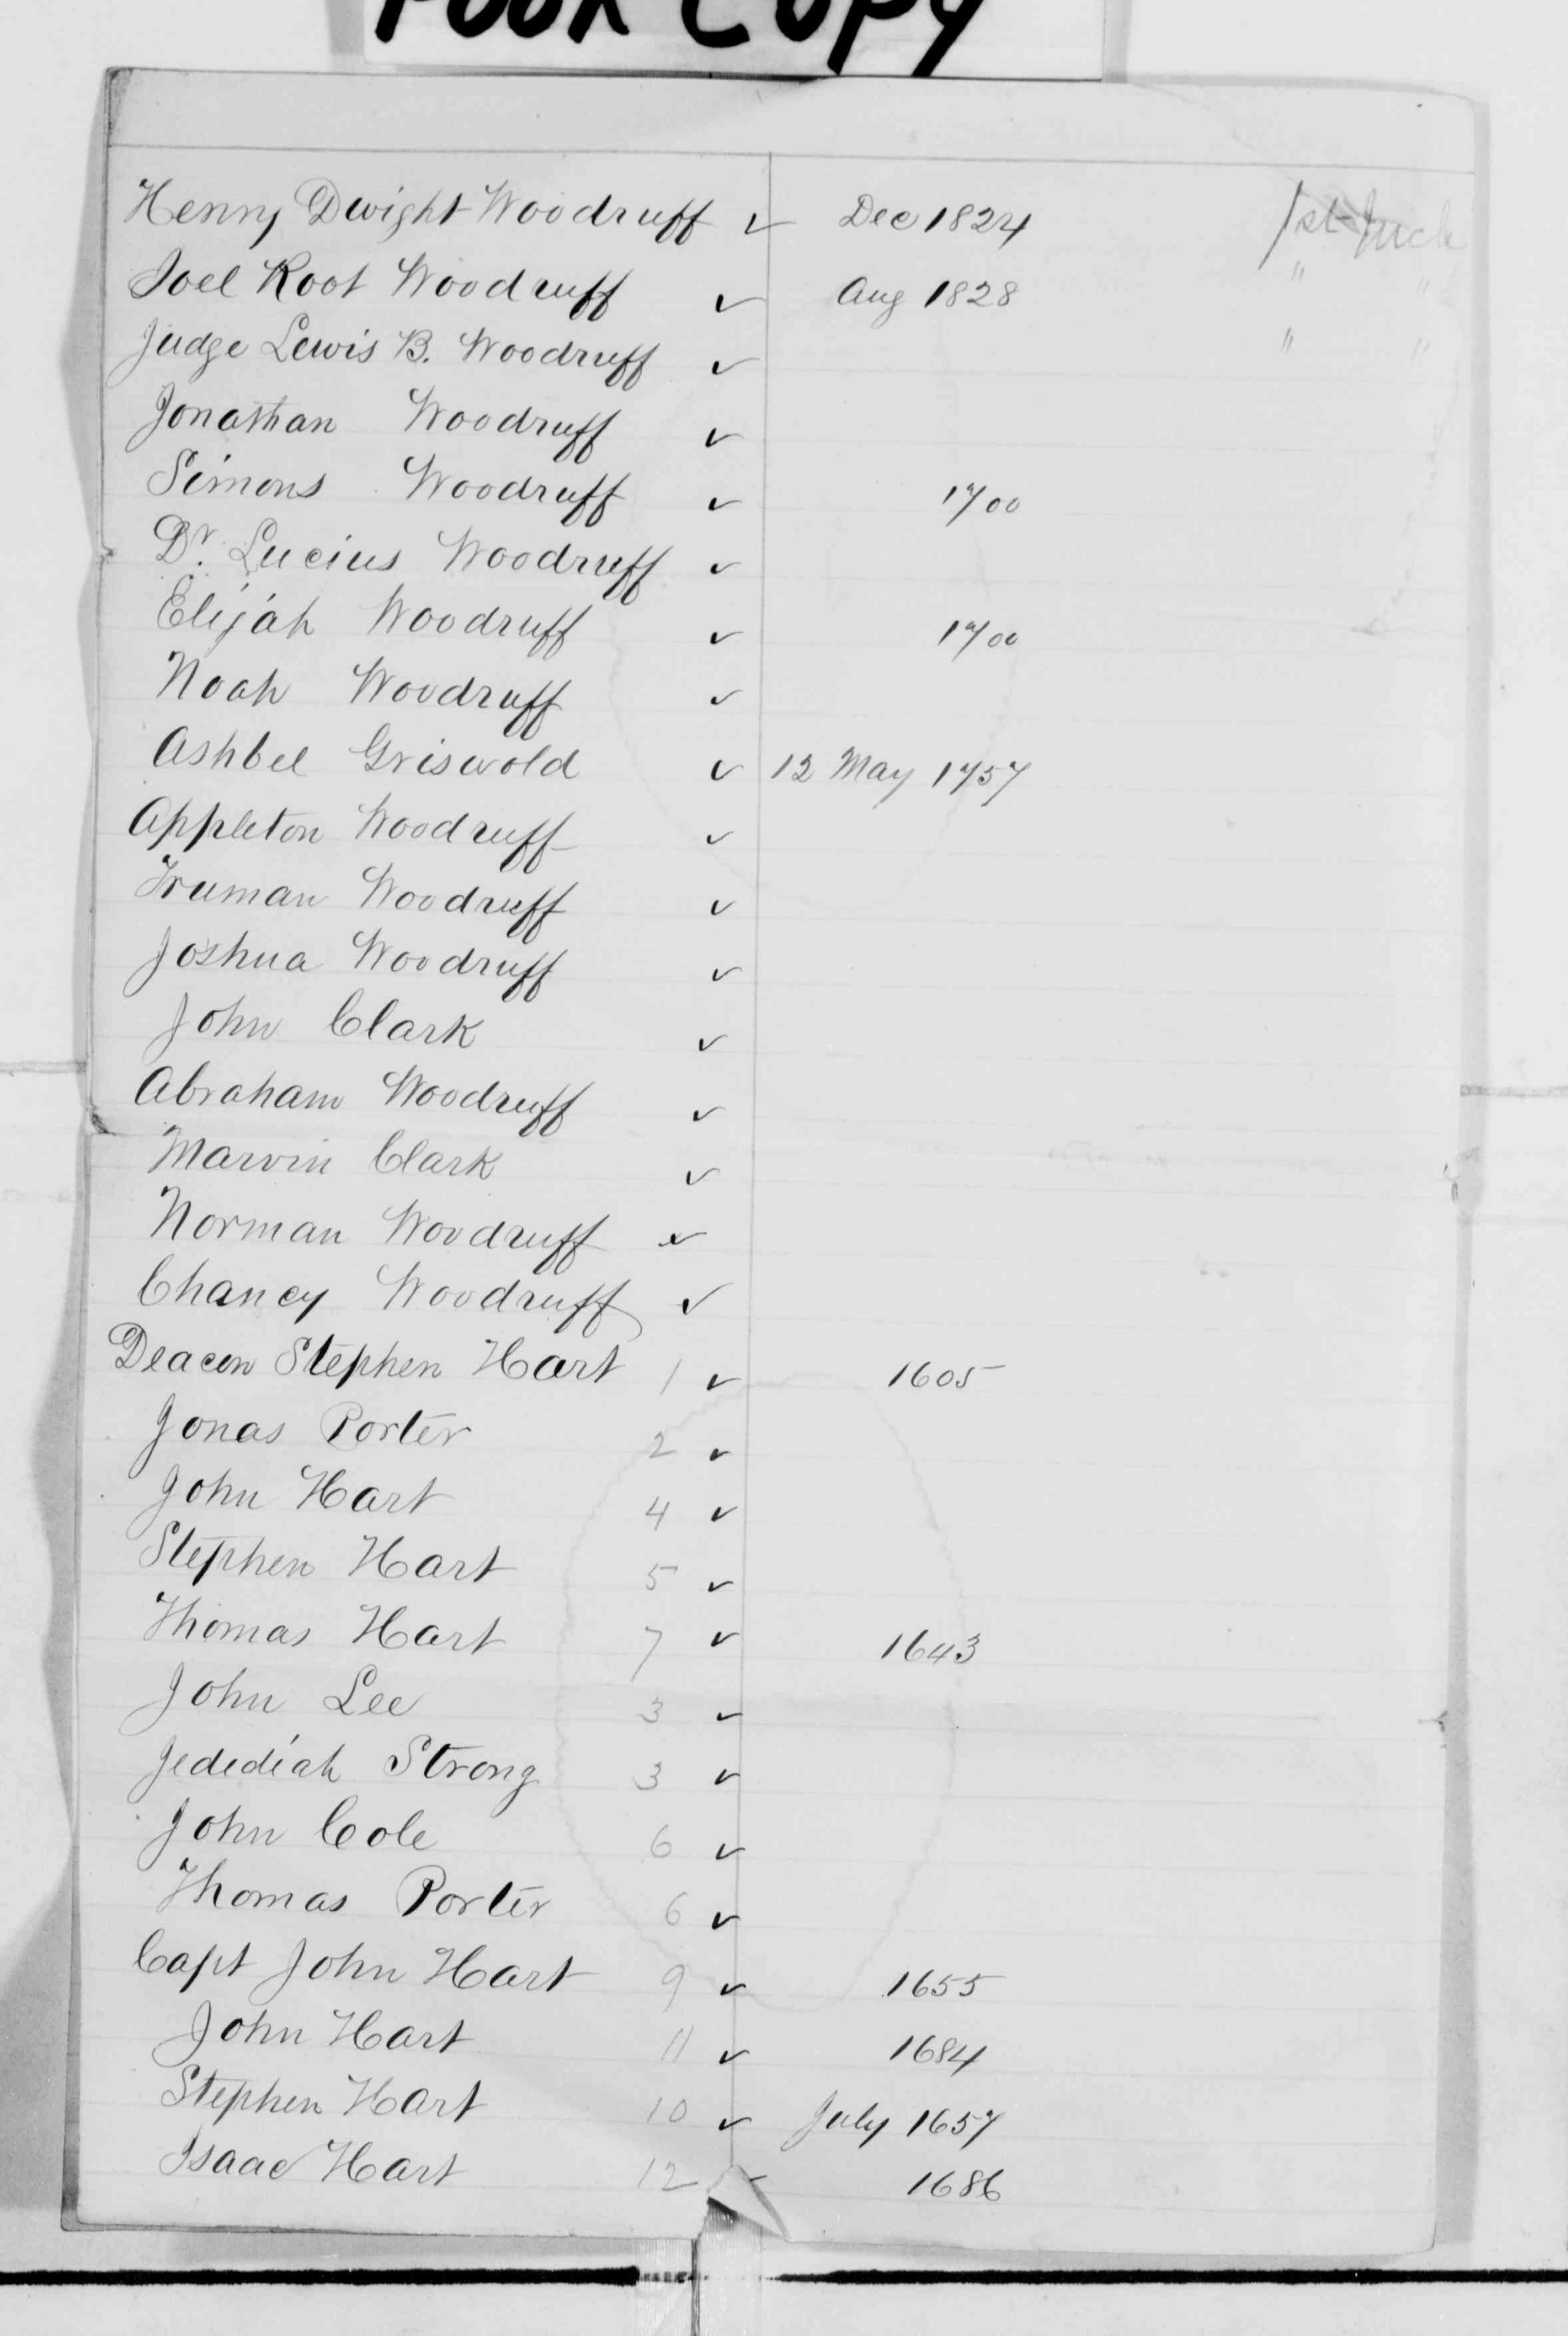 Poor Copy
Henry Dwight Woodruff ✓ Dec 1824 1st
Joel Root Woodruff ✓ Aug 1828 " "
Judge Lewis B. Woodruff ✓ " "
Jonathan Woodruff ✓
Simons Woodruff ✓ 1700
Dr. Lucius Woodruff ✓
Elijah Woodruff ✓ 1700
Noah Woodruff ✓
Ashbel Griswold ✓ 12 May 1757
Appleton Woodruff ✓
Truman Woodruff ✓
Joshua Woodruff ✓
John Clark ✓
Abraham Woodruff ✓
Marvin Clark ✓
Norman Woodruff ✓
Chancy Woodruff ✓
Deacon Stephen Hart 1 ✓ 1605
Jonas Porter 2 ✓
John Hart 4 ✓
Stephen Hart 5 ✓
Thomas Hart 7 ✓ 1643
John Lee 3 ✓
Jedediah Strong 3 ✓
John Cole 6 ✓
Thomas Porter 6 ✓
Capt John Hart 9 ✓ 1655
John Hart 11 ✓ 1684
Stephen Hart 10 ✓ July 1657
Isaac Hart 12 1686